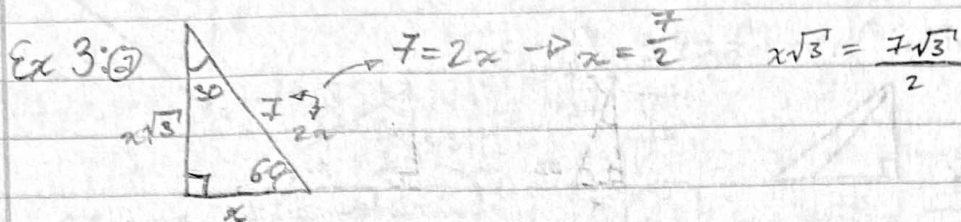 Ex 3:②
30
7
2x
x√3
60
x
7 = 2x → x = 7/2
x√3 = 7√3/2